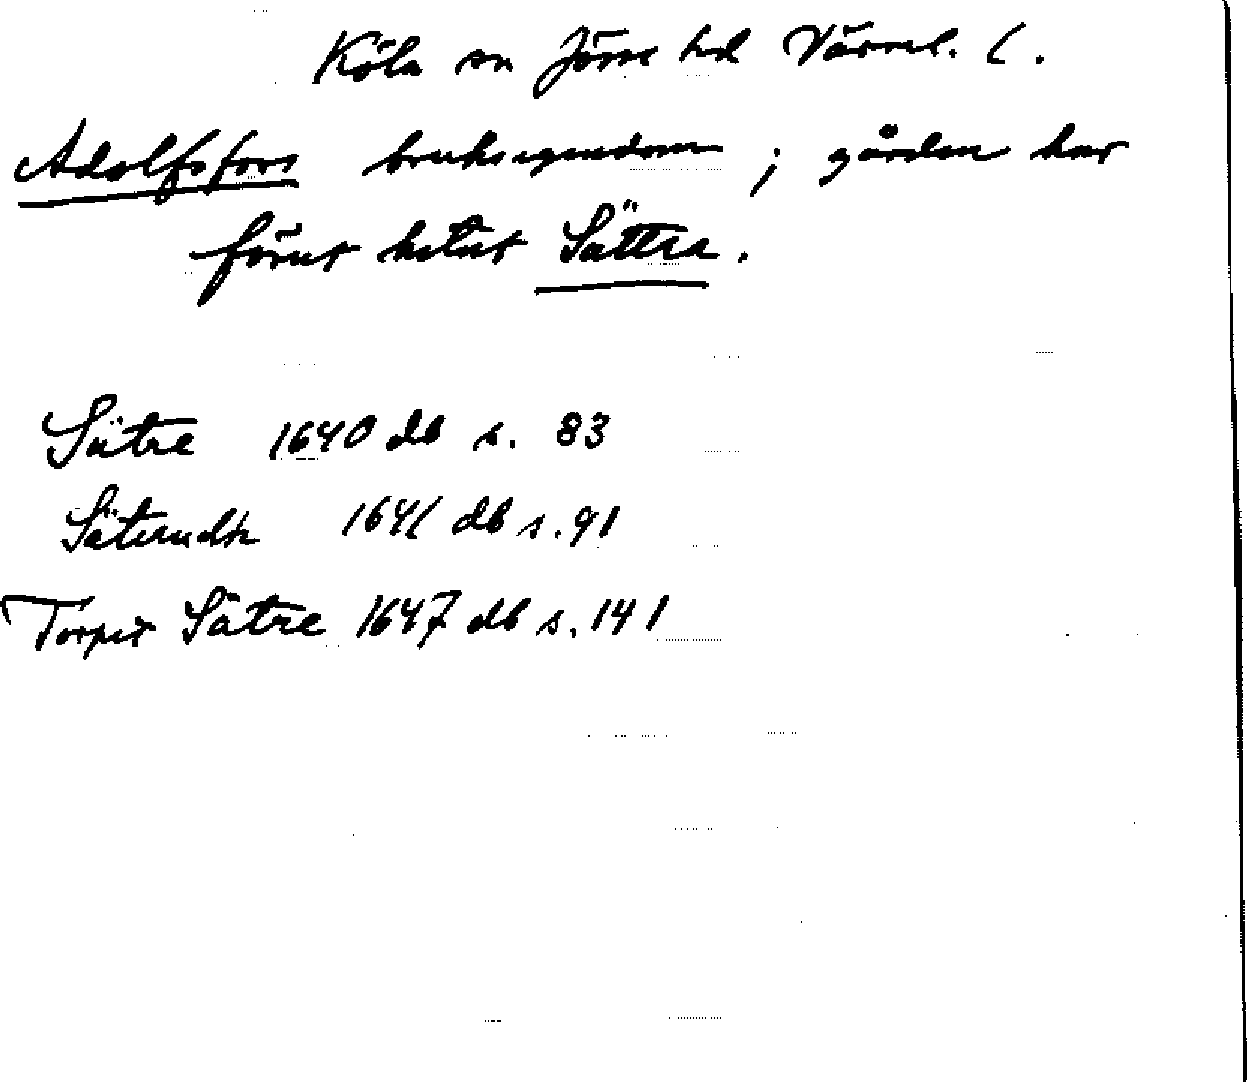 Köla sn Jösse hd Värml. l.
Adolfsfors bruksegendom; gården har
förut hetat Sättra.
Sätre 1640 db s. 83
1641 db s. 91
Torpet Sätre 1647 db s. 141